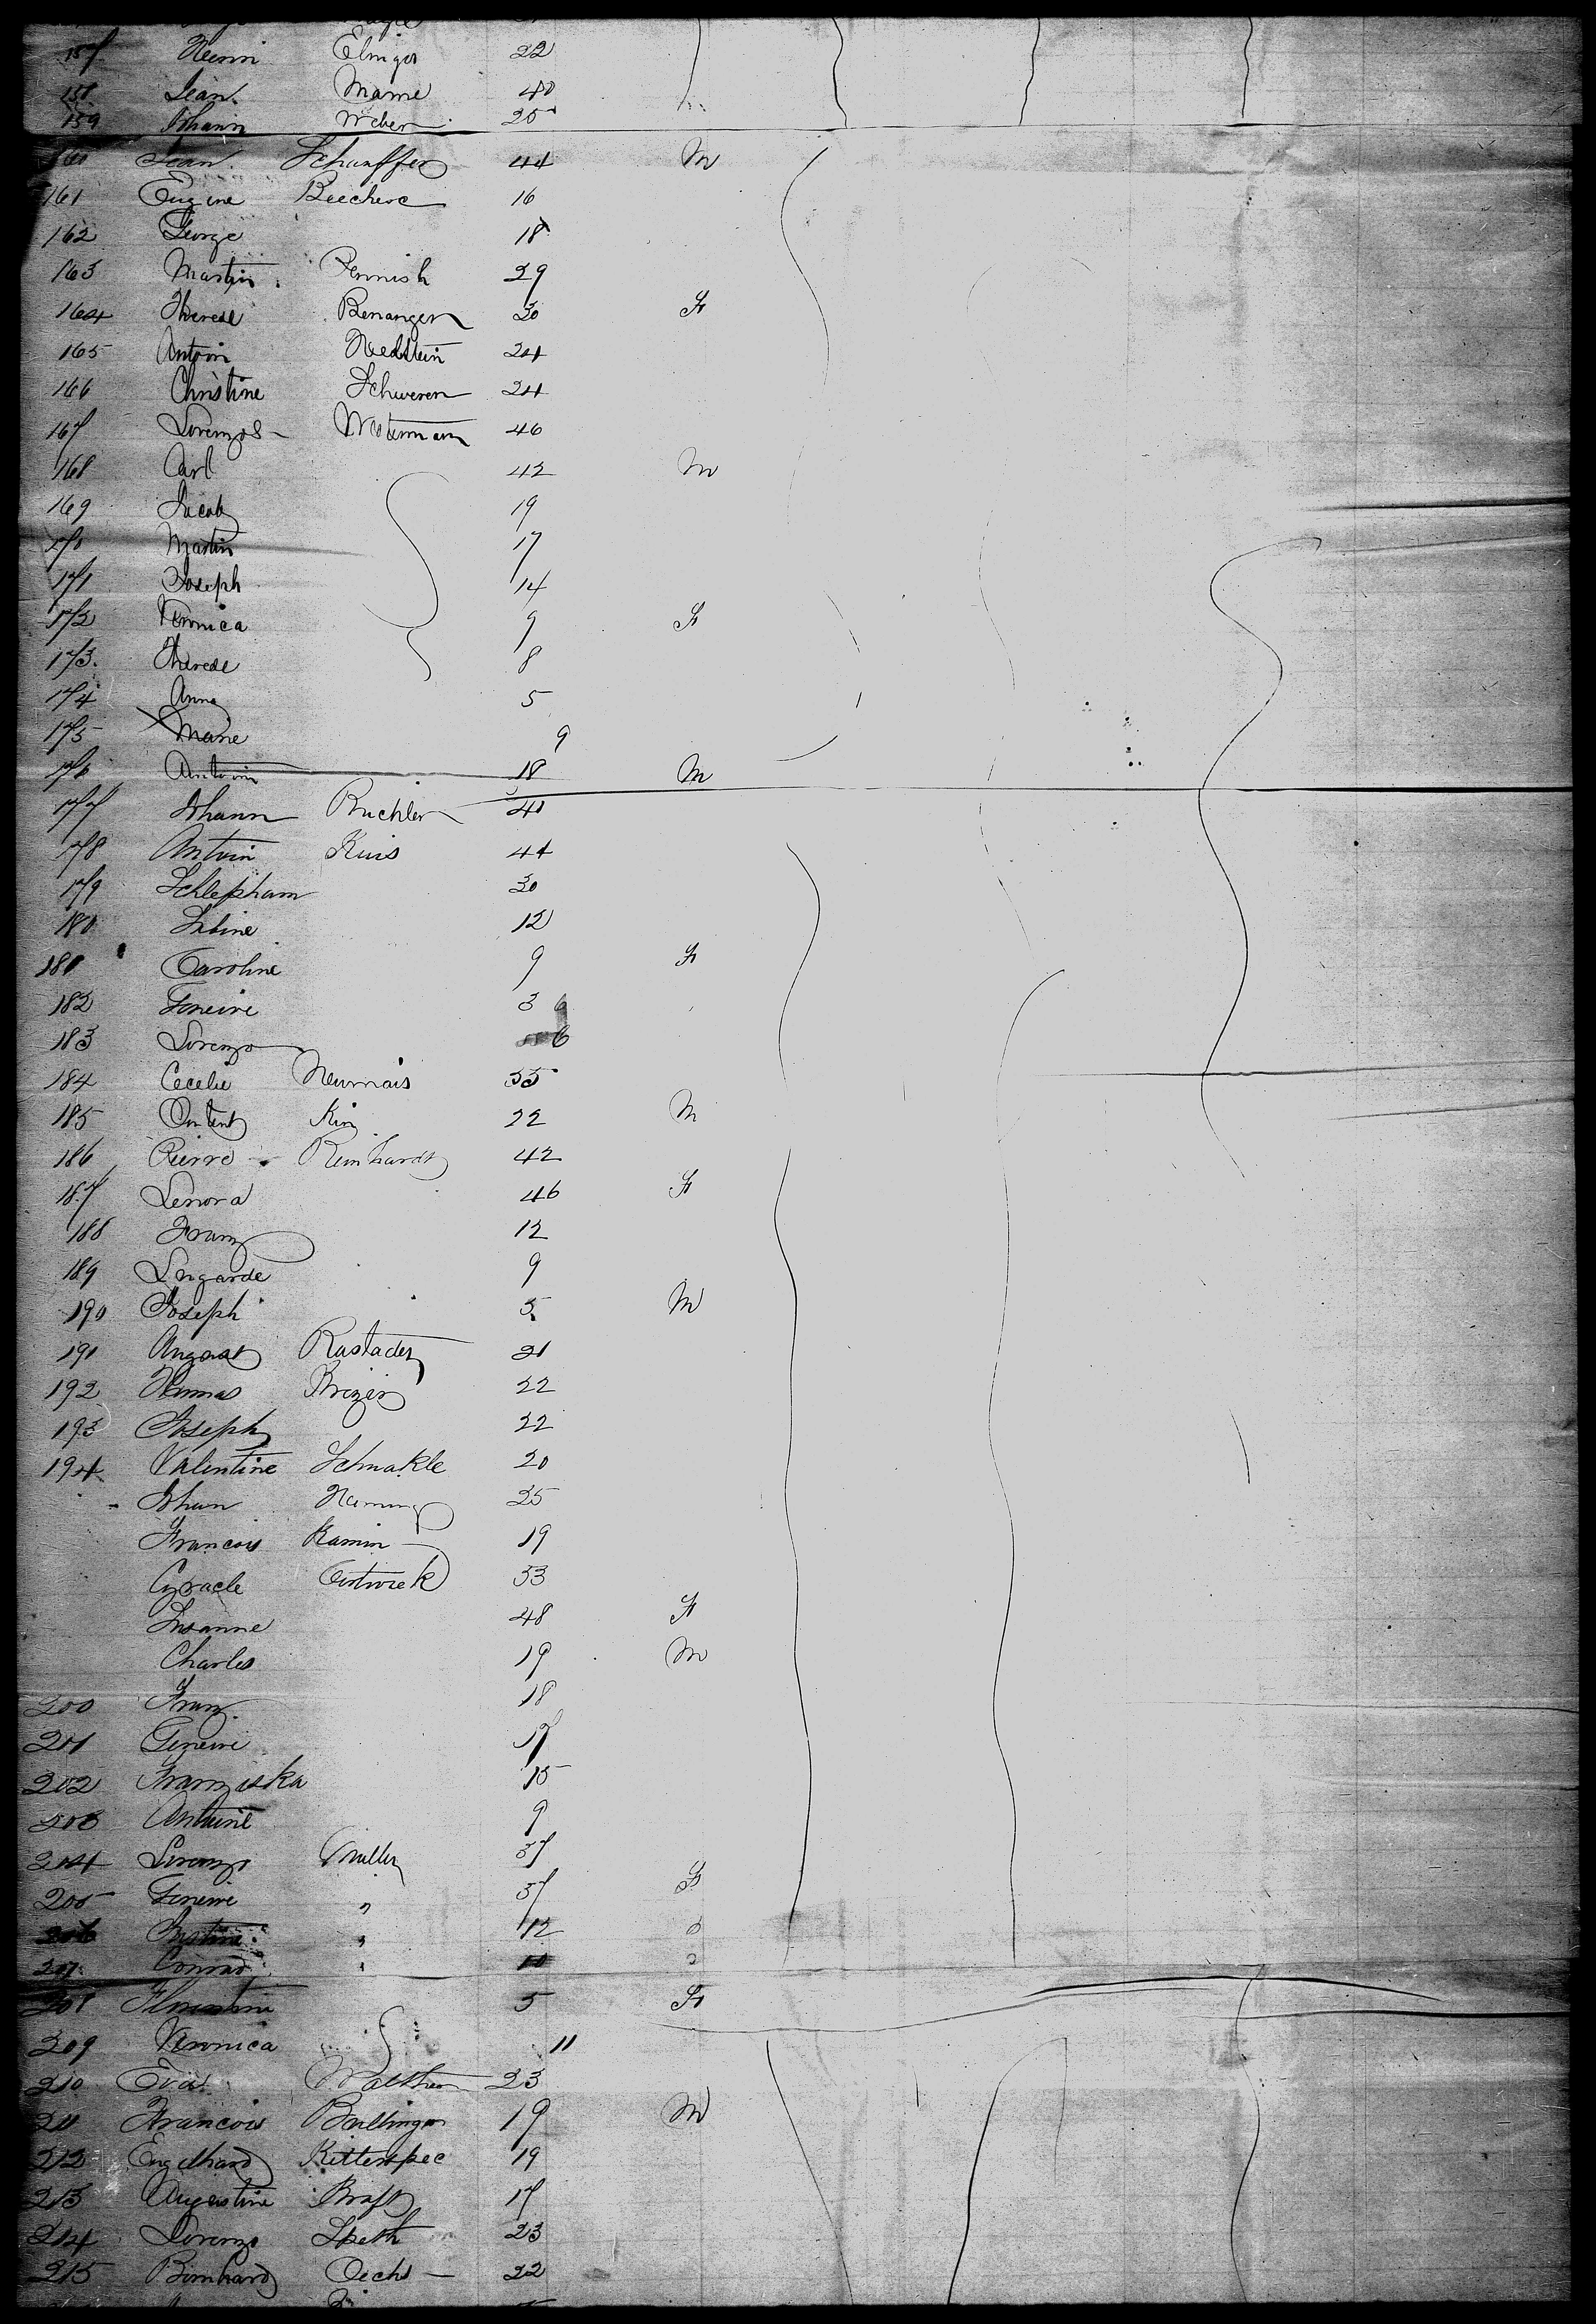 157 Henri Elinger 22
158 Jean Marne 40
159 Johann Weber 25
160 Jean Schauffer 44 M
161 Eugene Beechere 16
162 George 18
163 Martin Pennish 29
164 Therese Benanger 30 F
165 Antoin 24
166 Christine Schweren 24
167 Waterman 46
168 Carl 42 M
169 Jacob 19
170 Martin 17
171 Joseph 14
172 Veronica 9 F
173 Therese 8
174 Anna 5
175 Marie 9
176 Antoin 18 M
177 Johann Buchler 40
178 Antoin Kuis 44
179 Schlepham 30
180 Sabine 12
181 Caroline 9 F
182 3
183 Lorenzo 6
184 Cecelie Neumais 35
185 Kin 22 M
186 Pierre Reinhardt 42
187 Lenora 46 F
188 Franz 12
189 Lugarde 9
190 Joseph 5 M
191 August Rastader 21
192 Brezier 22
193 Joseph 22
194 Valentine Schnakle 20
Johan 25
Francois Kamin 19
33
Susanne 48 F
Charles 19 M
200 Franz 18
201 17
202 Franziska 15
203 Antoine 9
204 Lorenzo Muller 37
205 " 37 F
206 " 12
207 Conrad " 10
208 Florentine 5 F
209 Veronica 11
210 Eva Walther 23
211 Francois Ballinger 19 M
212 Engelhard Ritterspec 19
213 Augustine Kraft 17
214 Lorenzo Speth 23
215 Bernhard Oechs 22